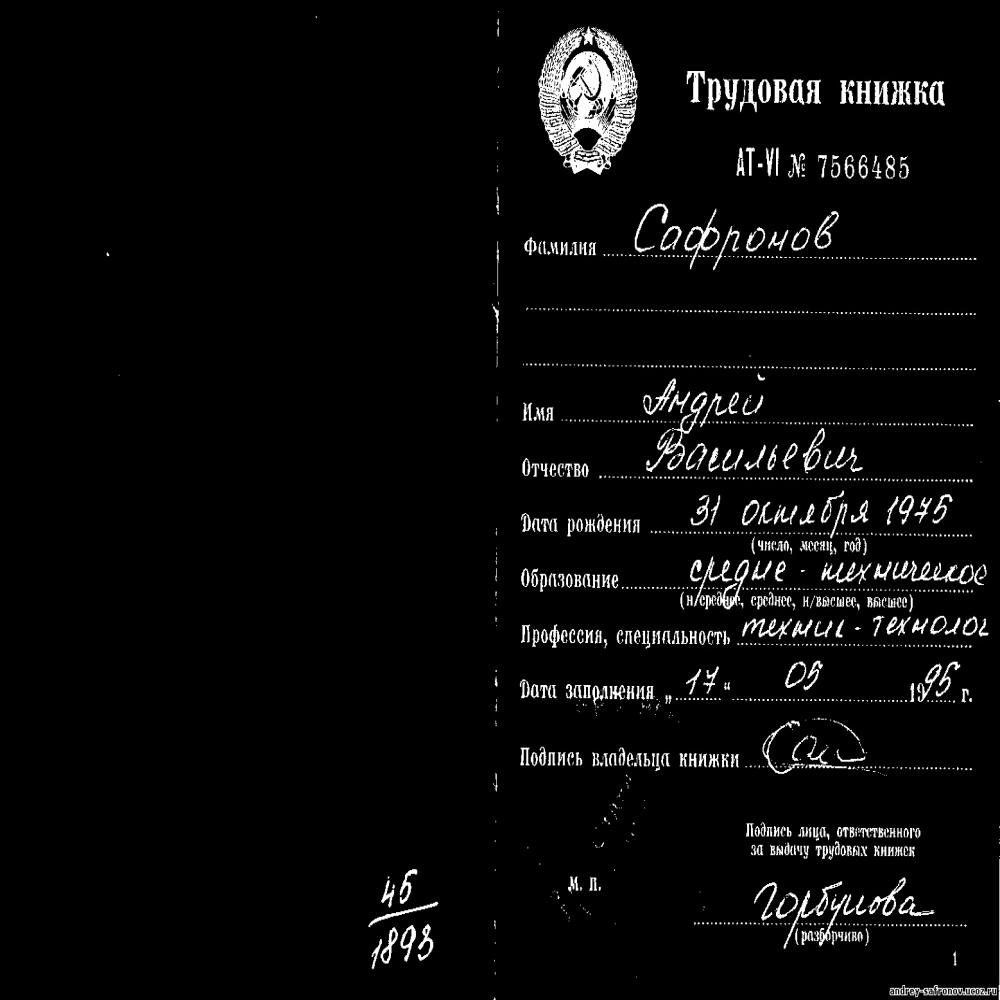 Трудовая книжка
АТ-VI № 7566485
Фамилия Сафронов
Имя Андрей
Отчество Васильевич
Дата рождения 31 октября 1975
(число, месяц, год)
Образование средне - техническое
(н/среднее, среднее, н/высшее, высшее)
Профессия, специальность техник - технолог
Дата заполнения „ 17 “ 05 1995 г.
Подпись владельца книжки Саф
Подпись лица, ответственного
за выдачу трудовых книжек
М. П.
Горбунова
(разборчиво)
45
1893
1
andrey-safronov.ucoz.ru